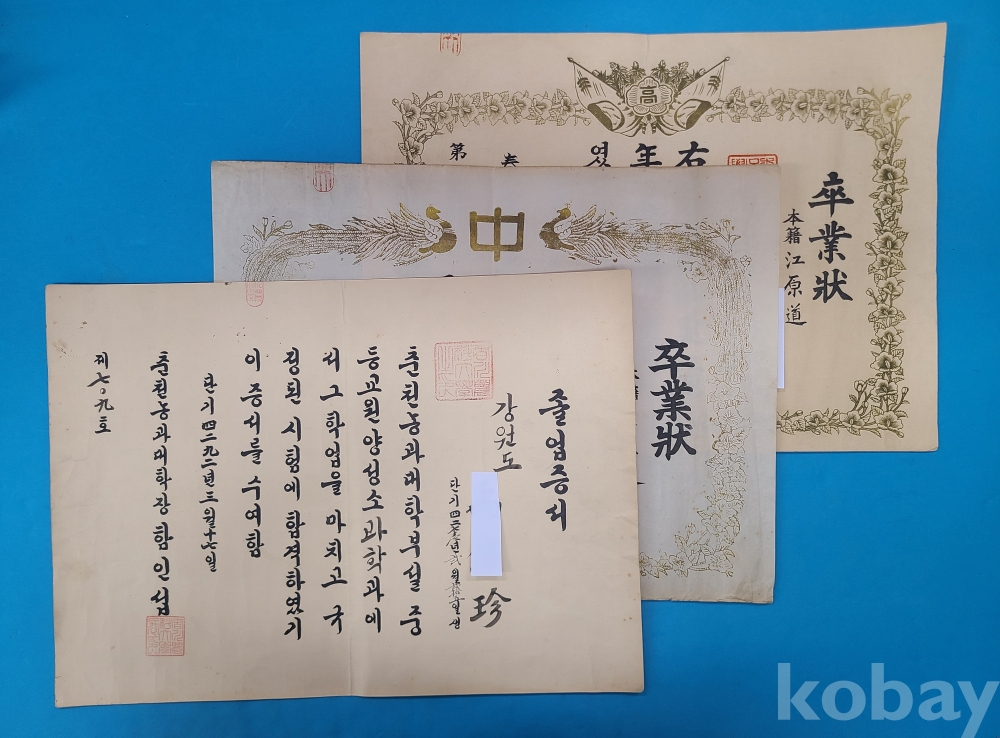 졸업증서
강원도
珍
춘천농과대학부설 중
등교원양성소과학과에
서 그 학업을 마치고 국
정된 시험에 합격하였기
이 증서를 수여함
단기 四二九二년 三월 十七일
춘천농과대학장 함인섭
제 七〇九호
中
卒業狀
高
卒業狀
本籍 江原道
右
年
였
第
kobay